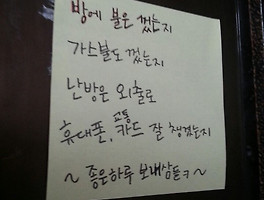 방에 불은 껐는지
가스불도 껐는지
난방은 외출로
휴대폰, 교통카드 잘 챙겼는지
~ 좋은하루 보내삼둥ㅋ ~